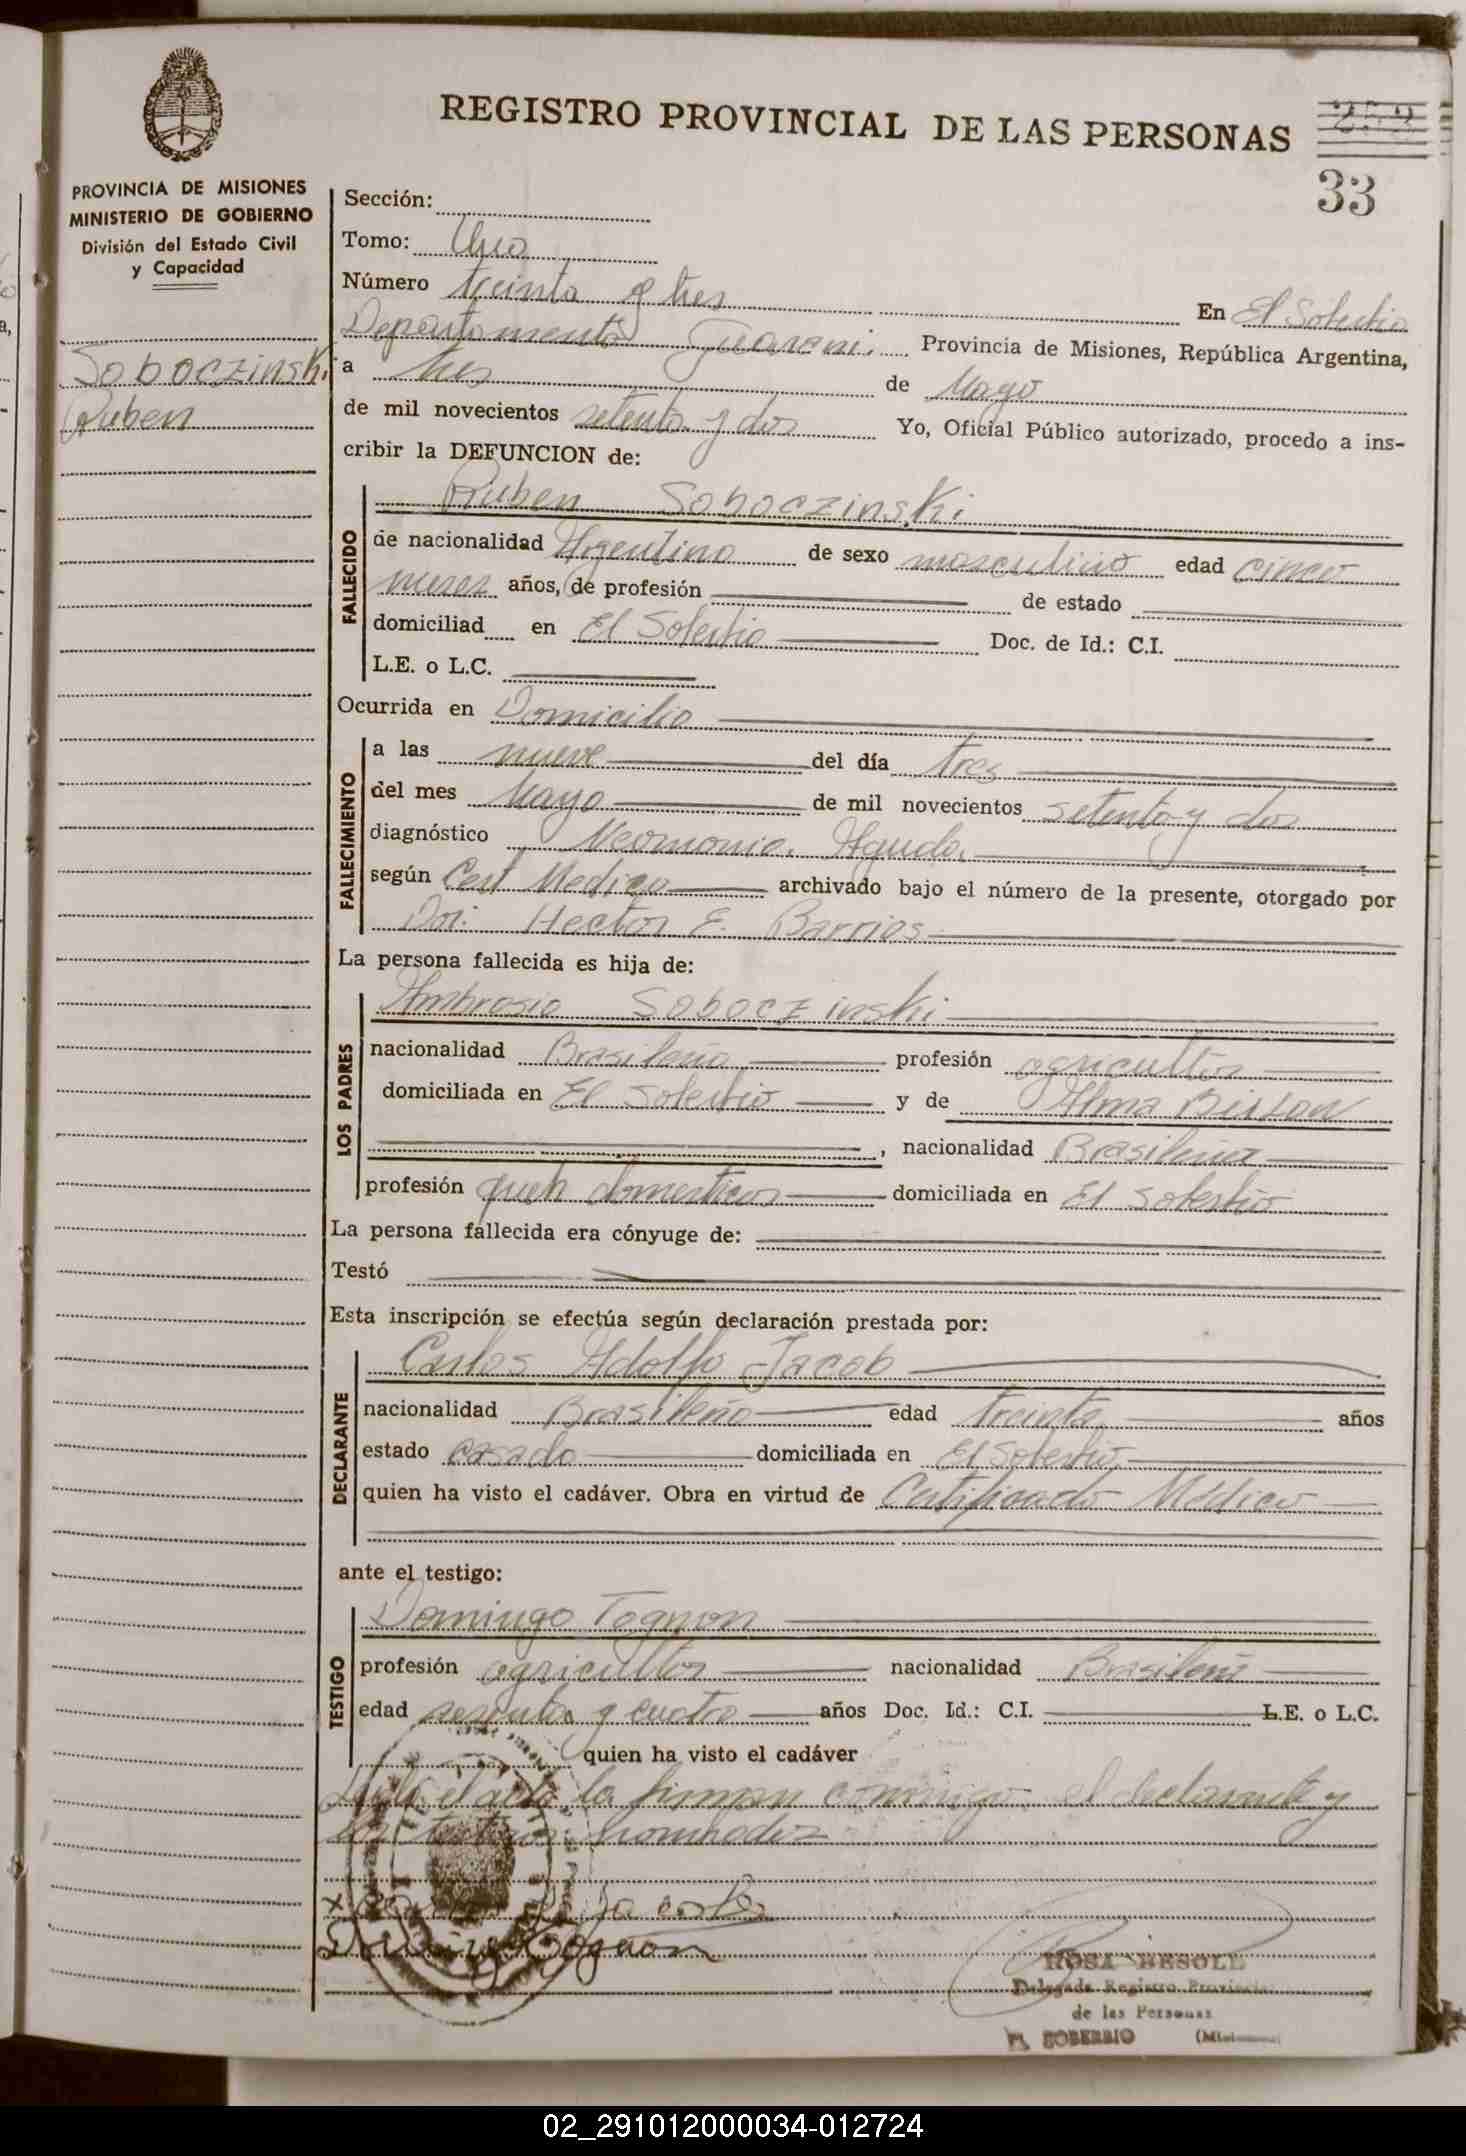 REGISTRO PROVINCIAL DE LAS PERSONAS
252
33
PROVINCIA DE MISIONES
MINISTERIO DE GOBIERNO
División del Estado Civil
y Capacidad
Soboczinski
Ruben
Sección:
Tomo: Uno
Número treinta y tres En El Soberbio
Departamento Guarani. Provincia de Misiones, República Argentina,
a tres de Mayo
de mil novecientos setenta y dos Yo, Oficial Público autorizado, procedo a ins-
cribir la DEFUNCION de:
FALLECIDO
Ruben Soboczinski
de nacionalidad Argentino de sexo masculino edad cinco
meses años, de profesión de estado
domiciliad en El Soberbio Doc. de Id.: C.I.
L.E. o L.C.
Ocurrida en Domicilio
FALLECIMIENTO
a las nueve del día tres
del mes Mayo de mil novecientos setenta y dos
diagnóstico Neomonia Aguda
según Cert Medico archivado bajo el número de la presente, otorgado por
Dor. Hector E. Barrios
La persona fallecida es hija de:
LOS PADRES
Ambrosio Soboczinski
nacionalidad Brasileño profesión agricultor
domiciliada en El Soberbio y de Alma
, nacionalidad Brasileña
profesión queh domesticos domiciliada en El Soberbio
La persona fallecida era cónyuge de:
Testó
Esta inscripción se efectúa según declaración prestada por:
DECLARANTE
Carlos Adolfo Jacob
nacionalidad Brasileño edad treinta años
estado casado domiciliada en El Soberbio
quien ha visto el cadáver. Obra en virtud de Certificado Médico
ante el testigo:
TESTIGO
Domingo Tognon
profesión agricultor nacionalidad Brasileño
edad sesenta y cuatro años Doc. Id.: C.I. L.E. o L.C.
quien ha visto el cadáver
el acta la firman conmigo el declarante y
nombrados
Domingo Tognon
ROSA BESOLD
Delegada Registro Provincial
de las Personas
EL SOBERBIO (Misiones)
02_291012000034-012724